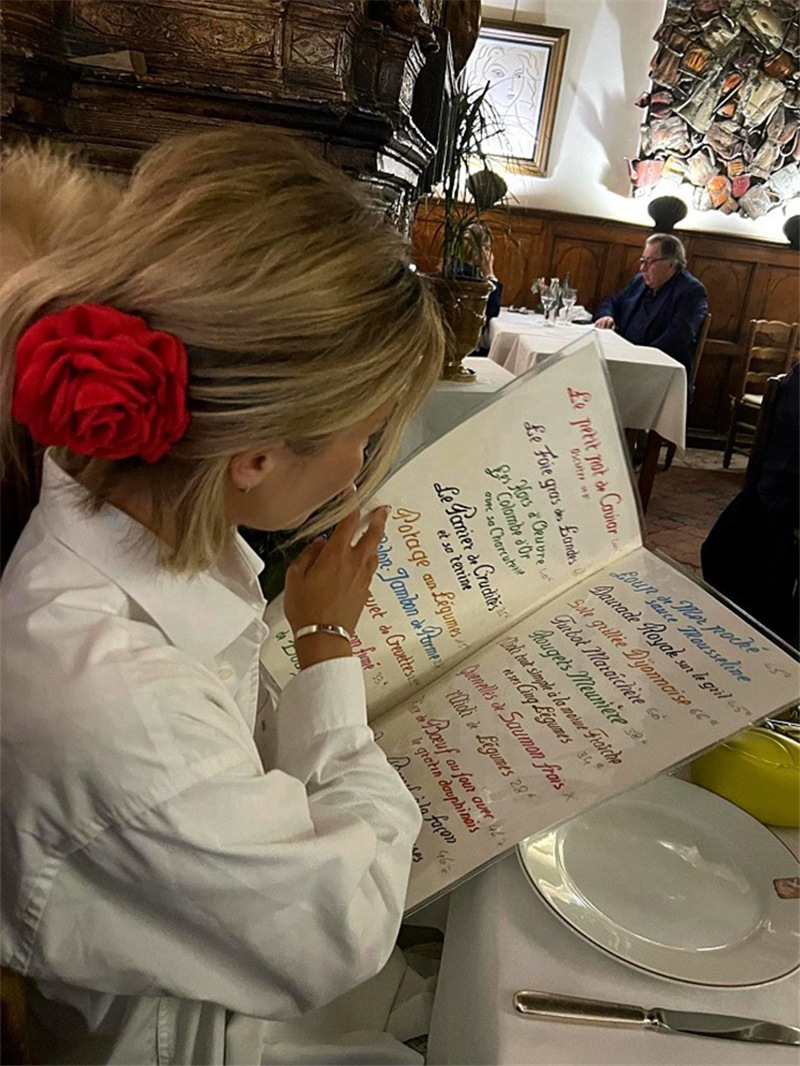 Le petit pot de Caviar
Le Foie gras des Landes
Les Hors d'Oeuvre
Colombe d'Or
avec sa Charcuterie
Le Panier de Crudités
et sa terrine
Potage aux Légumes
Jambon de Parme
de Crevettes
fumé
Loup de Mer poché
Sauce Mousseline
Daurade Royale sur le gril
Sole grillée Dijonnaise 66€
Turbot Maraîchère 60
Rougets Meunière 38
tout simple à la motte fraîche
et ses Cinq Légumes 34
Quenelles de Saumon frais
de Légumes 28€
Boeuf au four avec
le gratin dauphinois
à la façon
40€